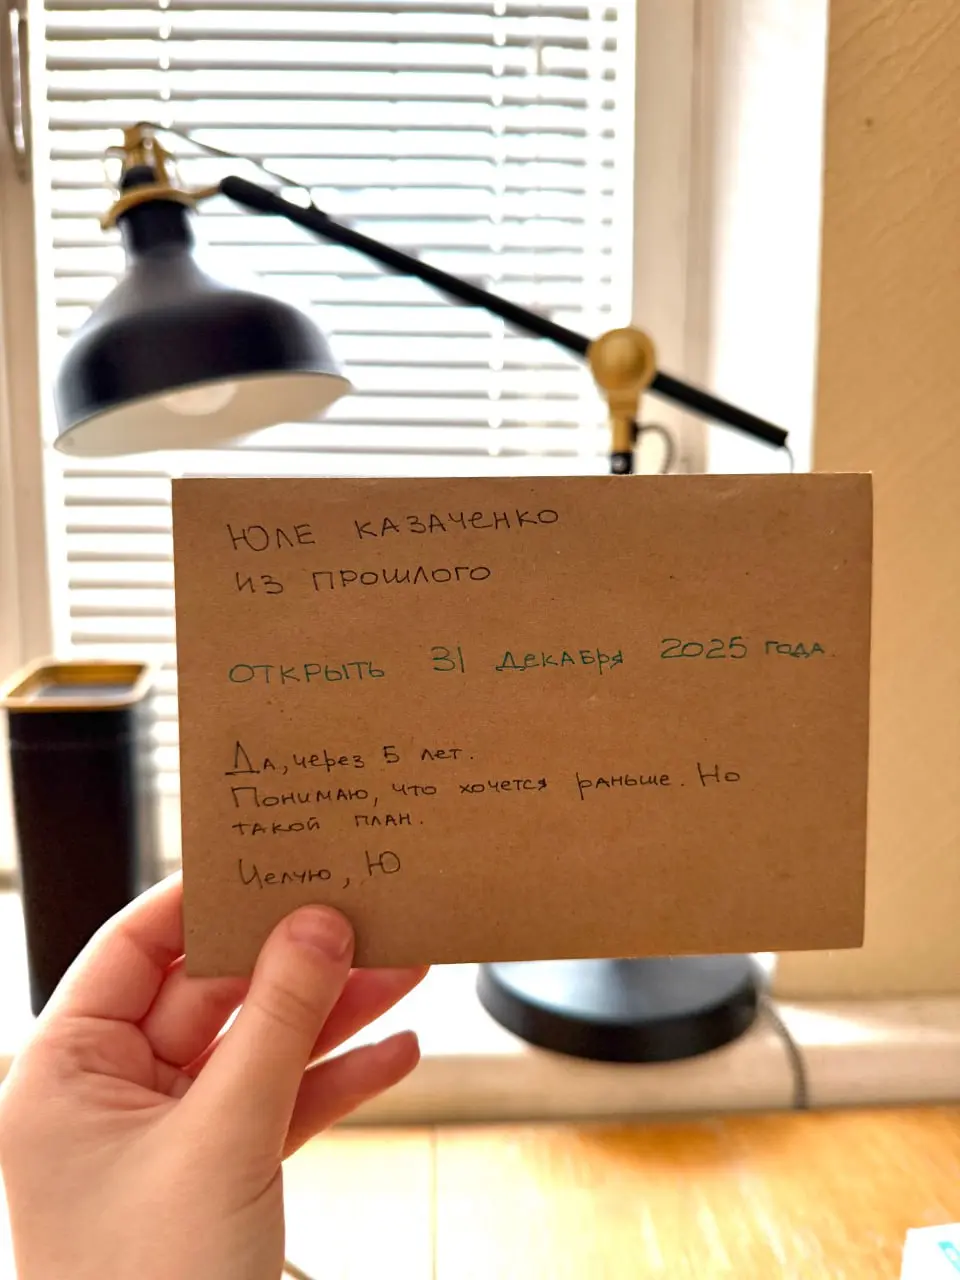 ЮЛЕ КАЗАЧЕНКО
ИЗ ПРОШЛОГО
ОТКРЫТЬ 31 ДЕКАБРЯ 2025 ГОДА.
Да, через 5 лет.
Понимаю, что хочется раньше. Но
такой план.
Целую, Ю